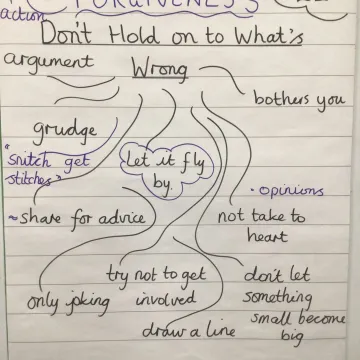 FORGIVENESS
action
Don't Hold on to What's
Wrong
argument
bothers you
grudge
"snitch get
stitches"
let it fly
by.
• opinions
~share for advice
not take to
heart
try not to get
involved
don't let
something
small become
big
only joking
draw a line